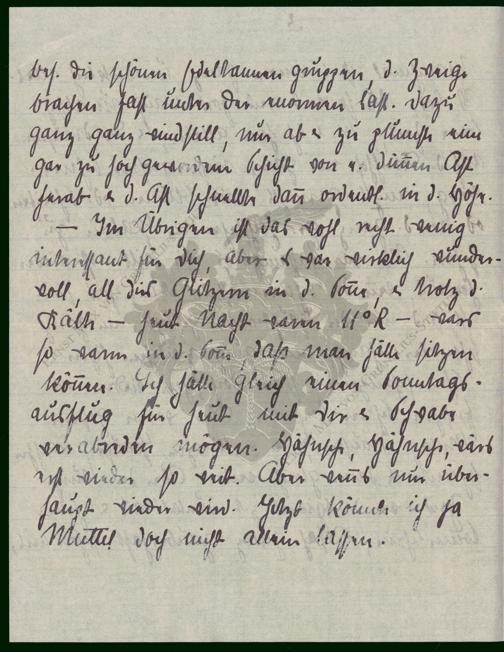 bes. die schönen Edeltannengruppen, d. Zweige
brachen fast unter der enormen Last. Dazu
ganz ganz windstill, nur ab u. zu plumste eine
gar zu hoch gewordene Schicht von e. dünnen Ast
herab u. d. Ast schnellte dann ordentl. in d. Höhe.
— Im Übrigen ist das wohl recht wenig
interessant für Dich, aber es war wirklich wunder-
voll, all dies Glitzern in d. Sonne, u. trotz d.
Kälte — heut Nacht waren 11° R — wars
so warm in d. Sonne, daß man hätte sitzen
können. Ich hätte gleich einen Sonntags-
ausflug für heut mit Dir u. Schwabe
verabreden mögen. Hähnsch, Hähnsch, wärs
erst wieder so weit. Aber wenns nur über-
haupt wieder wird. Jetzt könnte ich ja
Muttel doch nicht allein lassen.